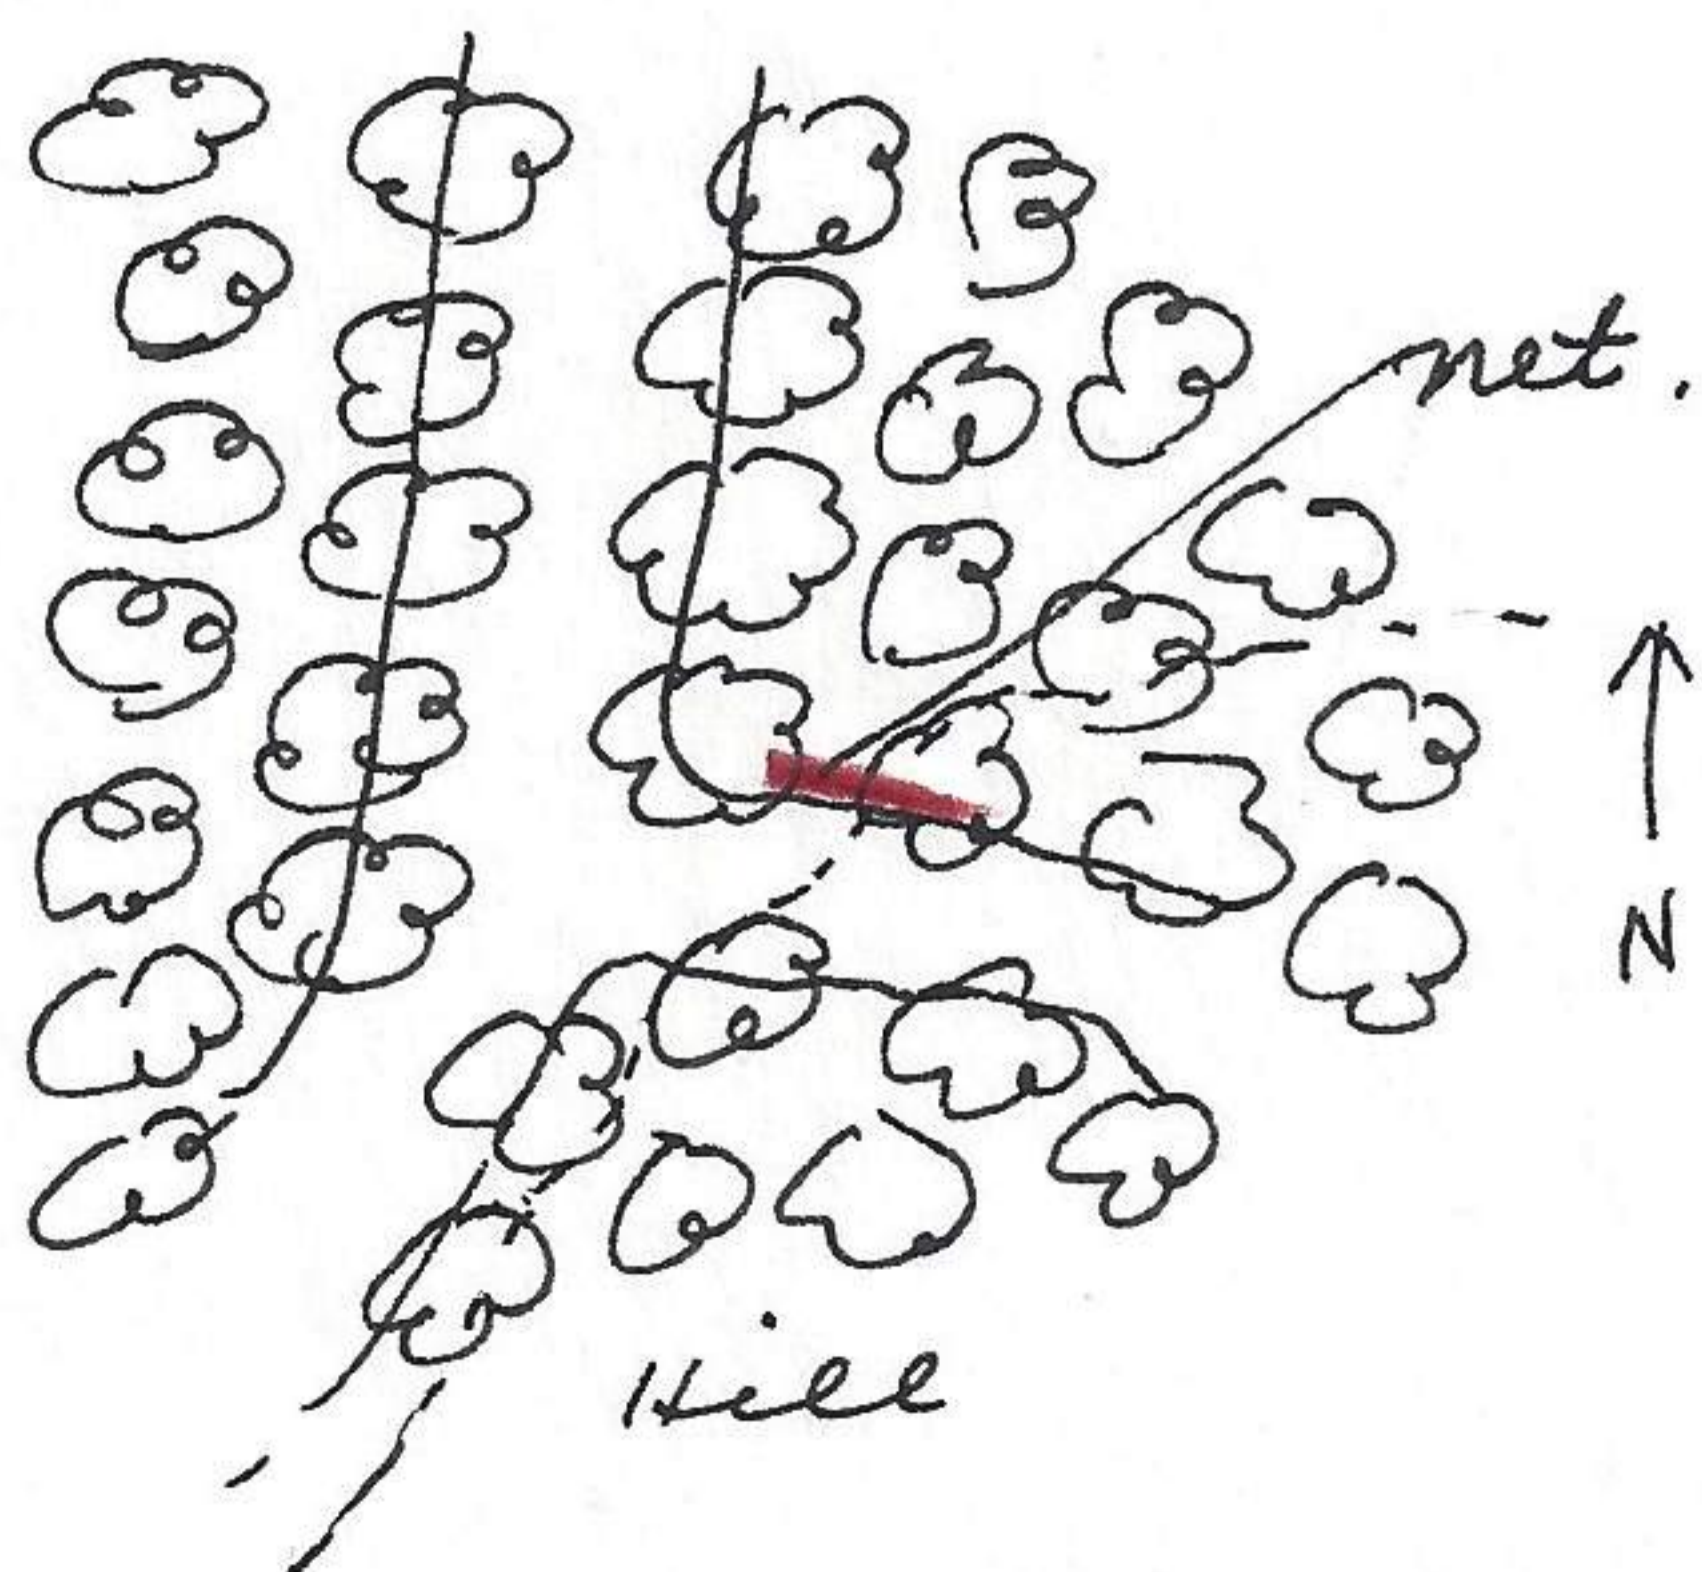 net.
N
Hill